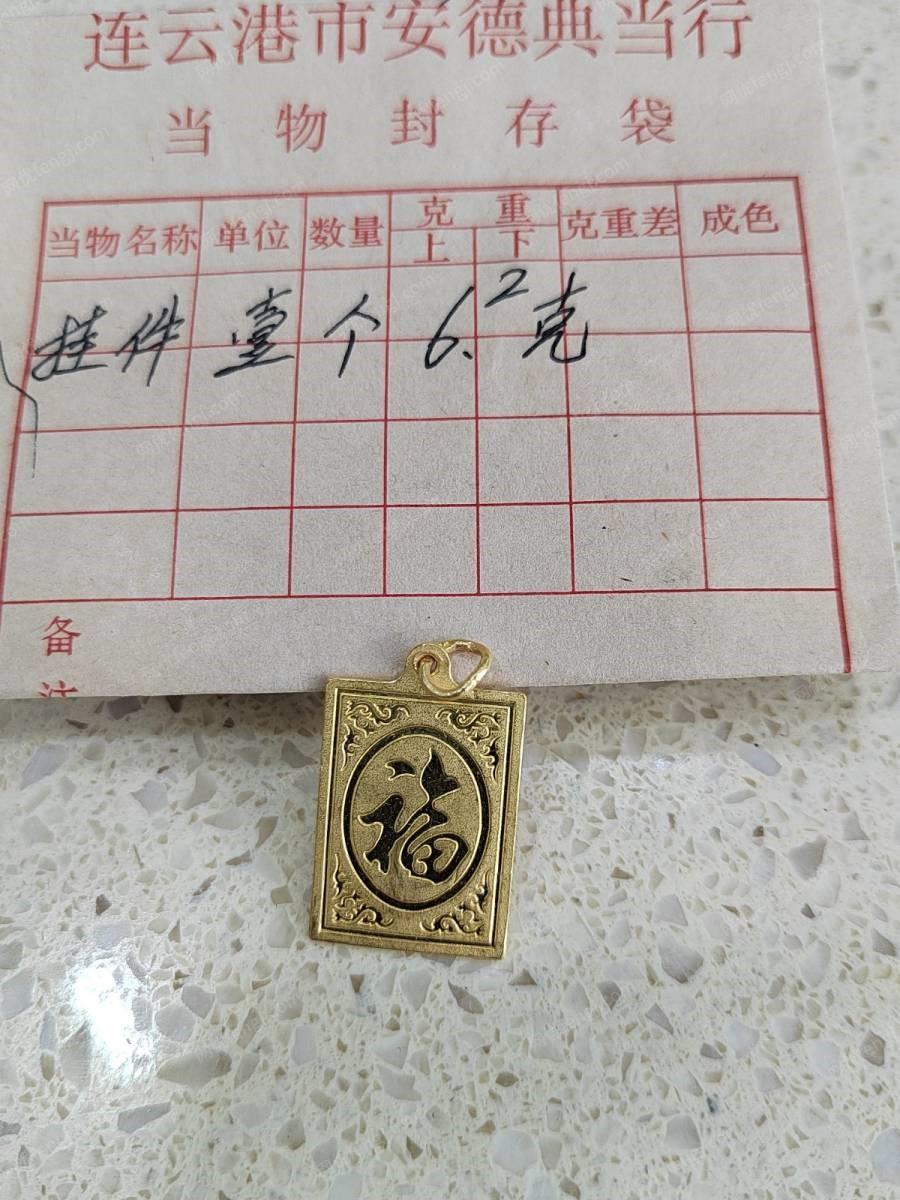 连云港市安德典当行
当物封存袋
当物名称 单位 数量 克重 克重差 成色
上 下
挂件 壹 个 6.2克
备
福